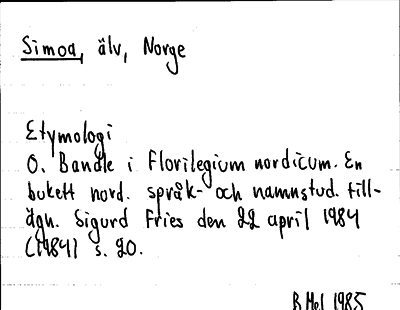 Simoa, älv, Norge
Etymologi
O. Bandle i Florilegium nordicum. En
bukett nord. språk- och namnstud. till-
ägn. Sigurd Fries den 22 april 1984
(1984) s. 20.
B Hel 1985